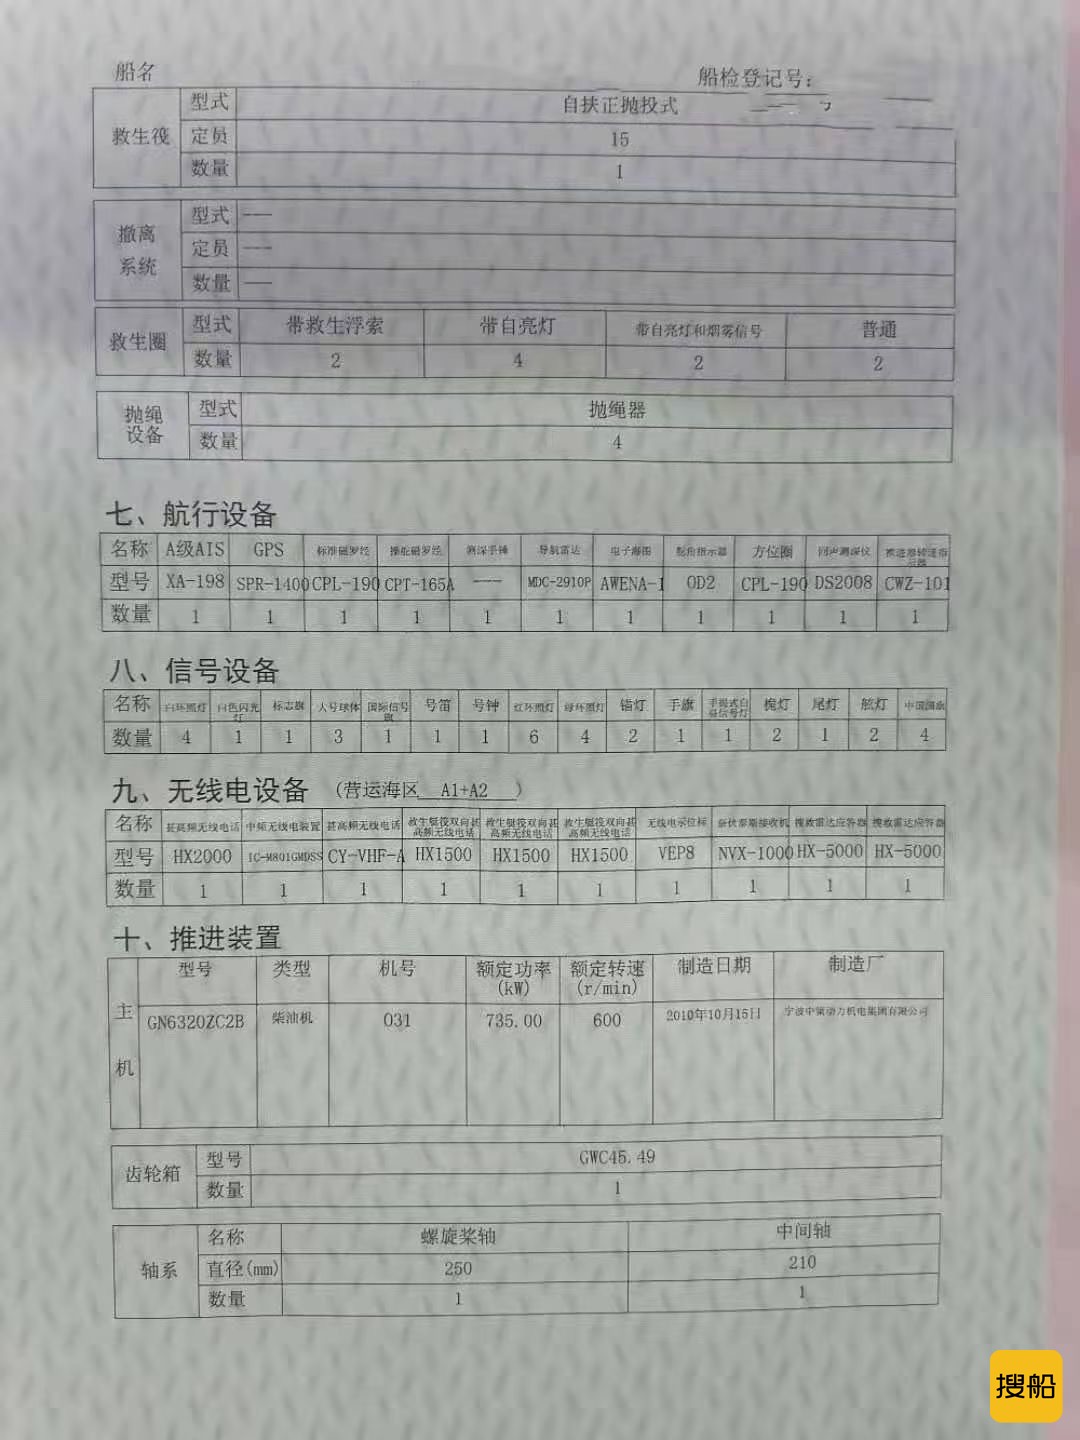 船名 船检登记号：
救生筏 型式 自扶正抛投式
定员 15
数量 1
撤离系统 型式 ---
定员 ---
数量 ---
救生圈 型式 带救生浮索 带自亮灯 带自亮灯和烟雾信号 普通
数量 2 4 2 2
抛绳设备 型式 抛绳器
数量 4
七、航行设备
名称 A级AIS GPS 标准磁罗经 操舵磁罗经 测深手锤 导航雷达 电子海图 舵角指示器 方位圈 回声测深仪 推进器转速指示器
型号 XA-198 SPR-1400 CPL-190 CPT-165A --- MDC-2910P AWENA-1 OD2 CPL-190 DS2008 CWZ-101
数量 1 1 1 1 1 1 1 1 1 1 1
八、信号设备
名称 白环照灯 白色闪光灯 标志旗 大号球体 国际信号旗 号笛 号钟 红环照灯 绿环照灯 锚灯 手旗 手提式白昼信号灯 桅灯 尾灯 舷灯 中国国旗
数量 4 1 1 3 1 1 1 6 4 2 1 1 2 1 2 4
九、无线电设备 （营运海区 A1+A2 ）
名称 甚高频无线电话 中频无线电装置 甚高频无线电话 救生艇筏双向甚高频无线电话 救生艇筏双向甚高频无线电话 救生艇筏双向甚高频无线电话 无线电示位标 奈伏泰斯接收机 搜救雷达应答器 搜救雷达应答器
型号 HX2000 IC-M801GMDSS CY-VHF-A HX1500 HX1500 HX1500 VEP8 NVX-1000 HX-5000 HX-5000
数量 1 1 1 1 1 1 1 1 1 1
十、推进装置
主机 型号 类型 机号 额定功率(kW) 额定转速(r/min) 制造日期 制造厂
GN6320ZC2B 柴油机 031 735.00 600 2010年10月15日 宁波中策动力机电集团有限公司
齿轮箱 型号 GWC45.49
数量 1
轴系 名称 螺旋桨轴 中间轴
直径(mm) 250 210
数量 1 1
搜船